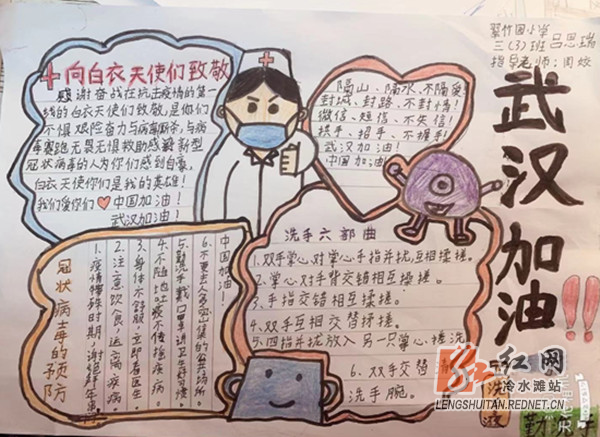 向白衣天使们致敬
感谢奋战在抗击疫情的第一
线的白衣天使们致敬,是你们
不惧艰险奋力与病毒厮杀,与病
毒赛跑无畏无惧救助感染新型
冠状病毒的人为你们感到自豪,
白衣天使你们是我的英雄!
我们爱你们中国加油!
武汉加油!
隔山、隔水、不隔爱!
封城、封路、不封情!
微信、短信、不失信!
拱手、招手、不握手!
武汉加油!
中国加油!
翠竹园小学
三(3)班吕思瑞
指导老师:周姣
武汉加油!!
冠状病毒的预防
1.疫情特殊时期,谢绝拜年串
2.注意饮食,远离疾病。
3.身体不舒服,立即看医生。
4.不随地吐痰不传播疾病。
5.勤洗手戴口罩讲卫生好习惯。
6.不要去人多密集的公共场所。
中国加油!
洗手六部曲
1.双手掌心对掌心手指并拢互相搓搓。
2.掌心对手背交错相互揉搓。
3.手指交错相互揉搓。
4.双手互相交替揉搓。
5.四指并拢放入另一只掌心,搓洗
6.双手交替
洗手腕。
洗
液
勤洗手
红网
冷水滩站
LENGSHUITAN.REDNET.CN